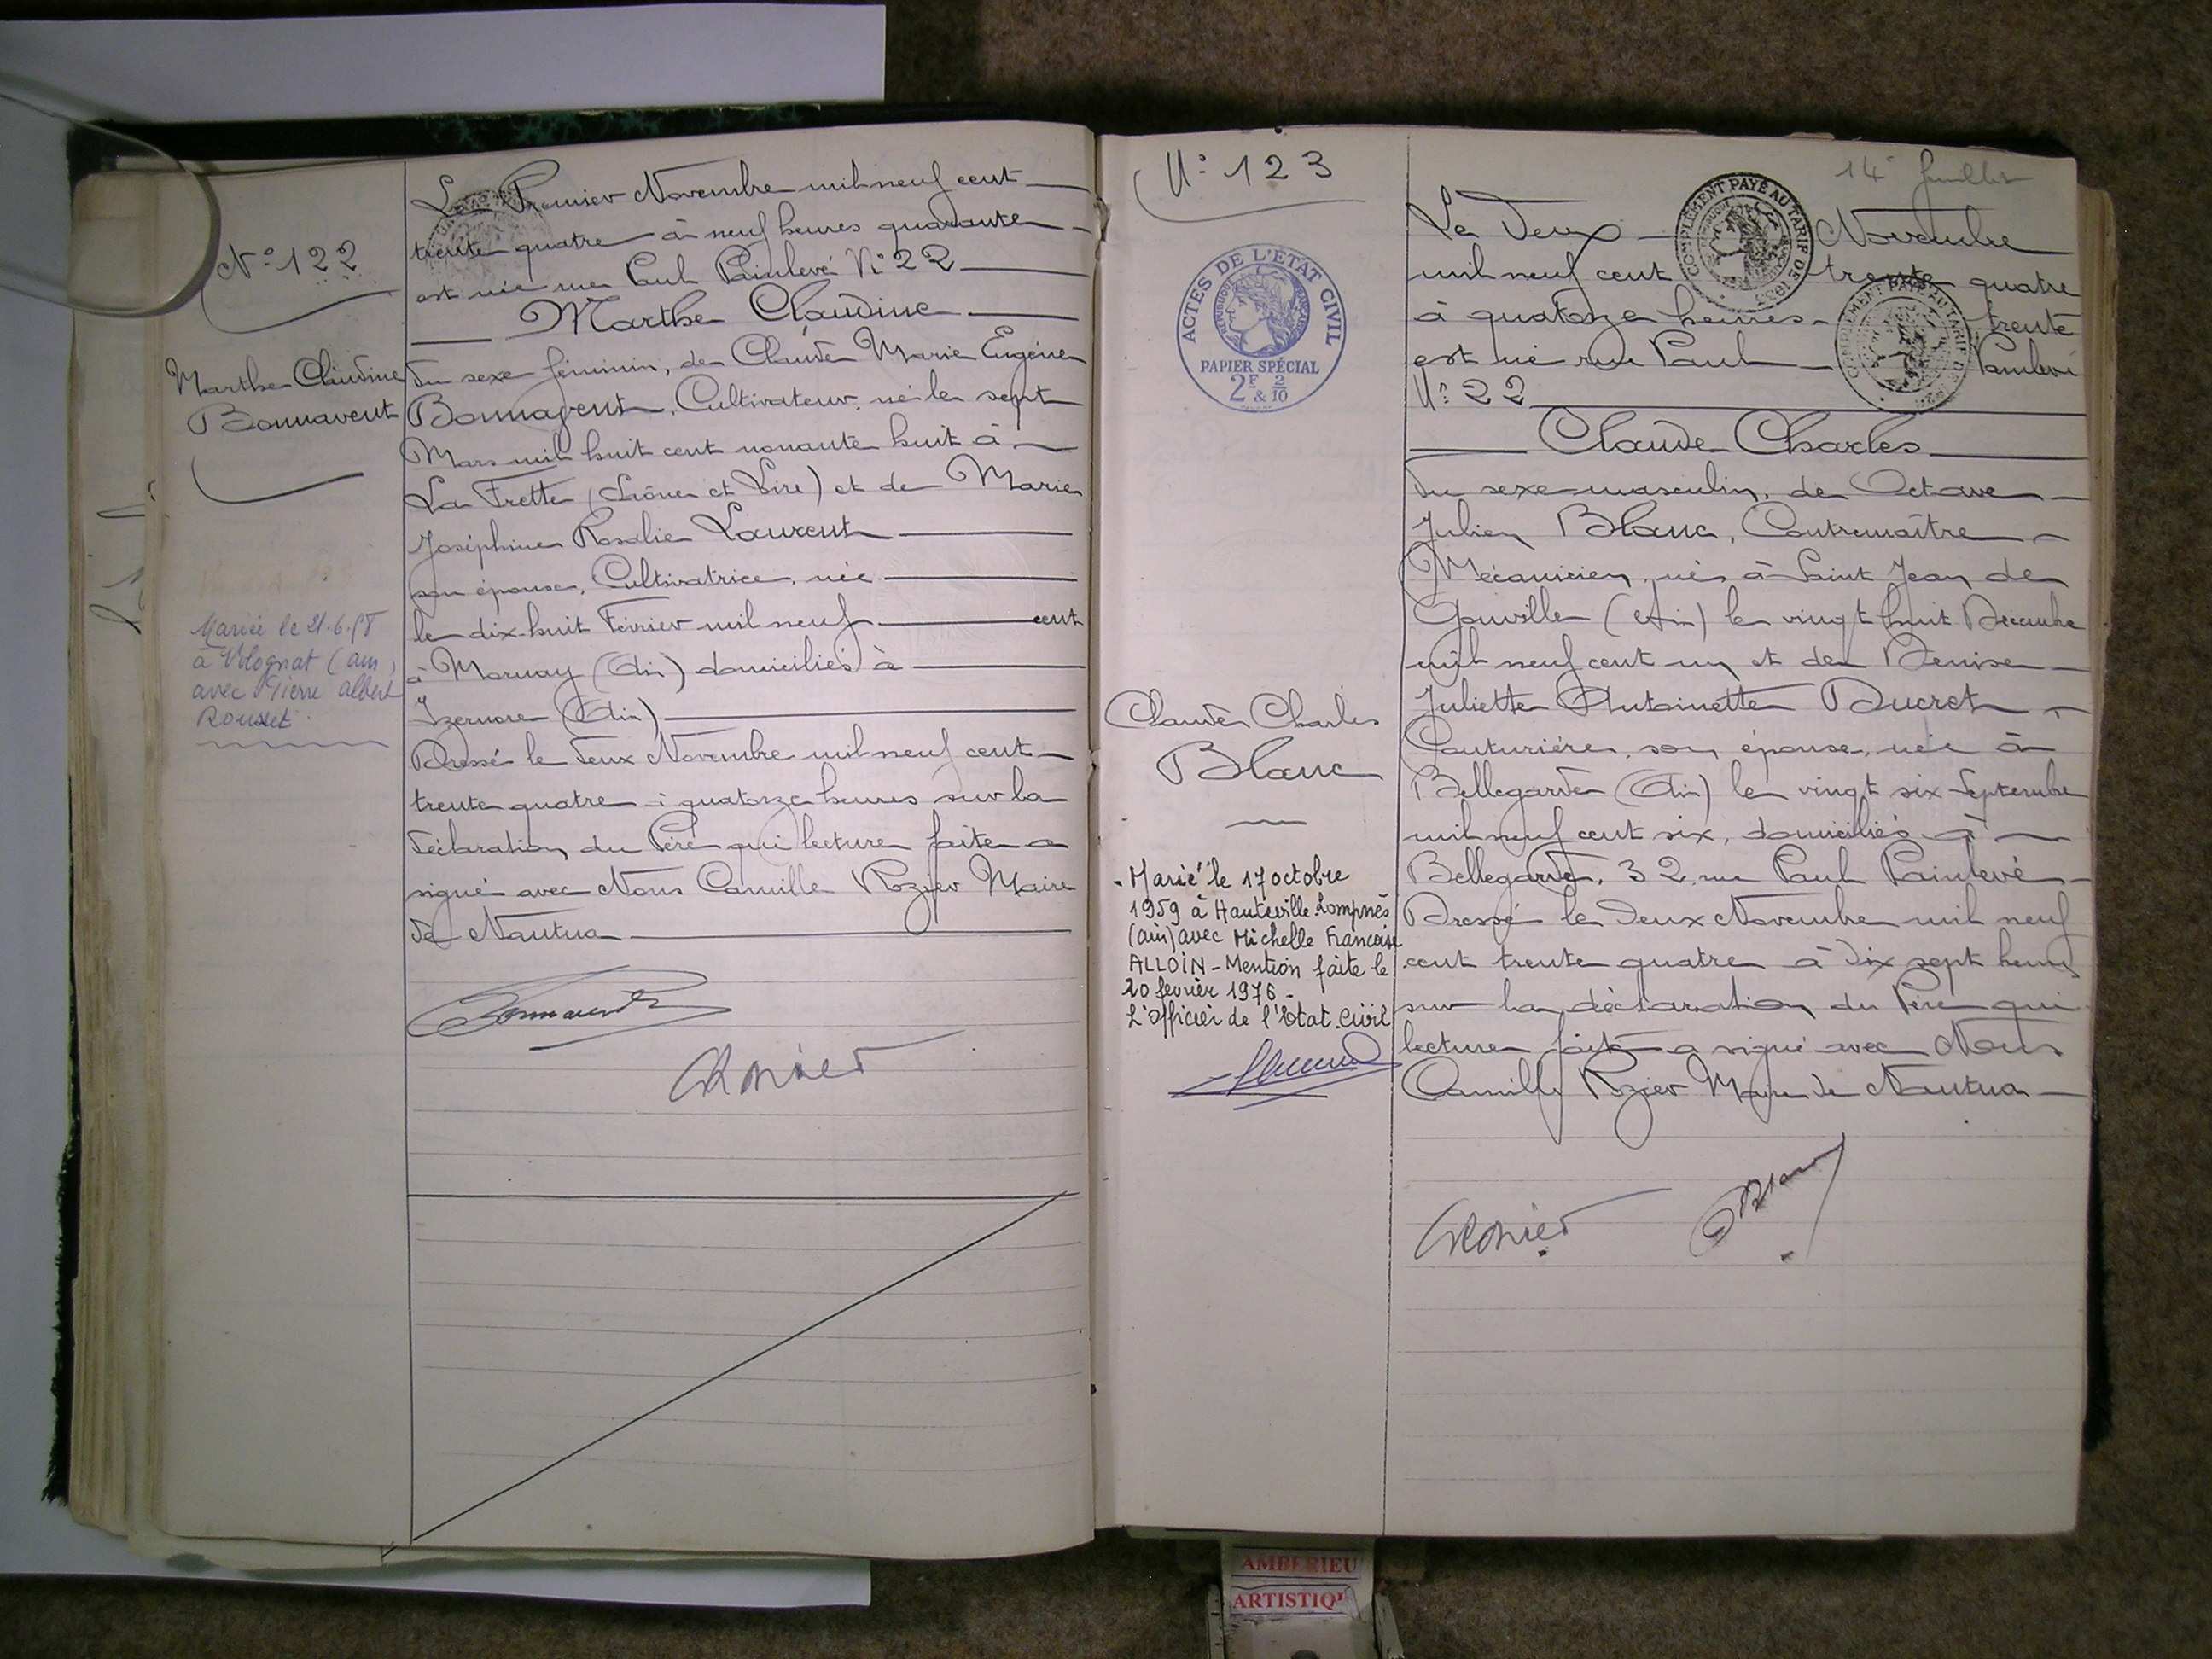 N° 122
Marthe Claudine
Bonnavent
Mariée le 21.6.58
à Volognat (ain)
avec Pierre Albert
Rousset.
Le Premier Novembre mil neuf cent
trente quatre à neuf heures quarante
est née rue Paul Painlevé N° 22
Marthe Claudine
du sexe féminin, de Claude Marie Eugène
Bonnavent, Cultivateur, né le sept
Mars mil huit cent nonante huit à
La Frette (Saône et Loire) et de Marie
Joséphine Rosalie Laurent
son épouse, Cultivatrice, née
le dix huit Février mil neuf cent
à Mornay (Ain) domiciliés à
Izernore (Ain)
Dressé le deux Novembre mil neuf cent
trente quatre à quatorze heures sur la
déclaration du Père qui lecture faite a
signé avec Nous Camille Rozier Maire
de Nantua
Bonnavent
N° 123
ACTES DE L'ÉTAT CIVIL
RÉPUBLIQUE FRANÇAISE
PAPIER SPÉCIAL
2F & 2/10
Claude Charles
Blanc
- Marié le 17 octobre
1959 à Hauteville-Lompnès
(ain) avec Michelle Françoise
ALLOIN - Mention faite le
20 fevrier 1976 -
L'Officier de l'Etat-Civil
14e feuillet
COMPLÉMENT PAYÉ AU TARIF DE
COMPLÉMENT PAYÉ AU TARIF DE
Le Deux Novembre
mil neuf cent trente quatre
à quatorze heures trente
est né rue Paul Painlevé
N° 22
Claude Charles
du sexe masculin, de Octave
Julien Blanc, Contremaître
Mécanicien, né à Saint Jean de
Gonville (Ain) le vingt huit Décembre
mil neuf cent un et de Denise
Juliette Antoinette Ducret,
Couturière, son épouse, née à
Bellegarde (Ain) le vingt six Septembre
mil neuf cent six, domiciliés à
Bellegarde, 32, rue Paul Painlevé
Dressé le deux Novembre mil neuf
cent trente quatre à dix sept heures
sur la déclaration du Père qui
lecture faite a signé avec Nous
Camille Rozier Maire de Nantua
Blanc
AMBERIEU
ARTISTIQ